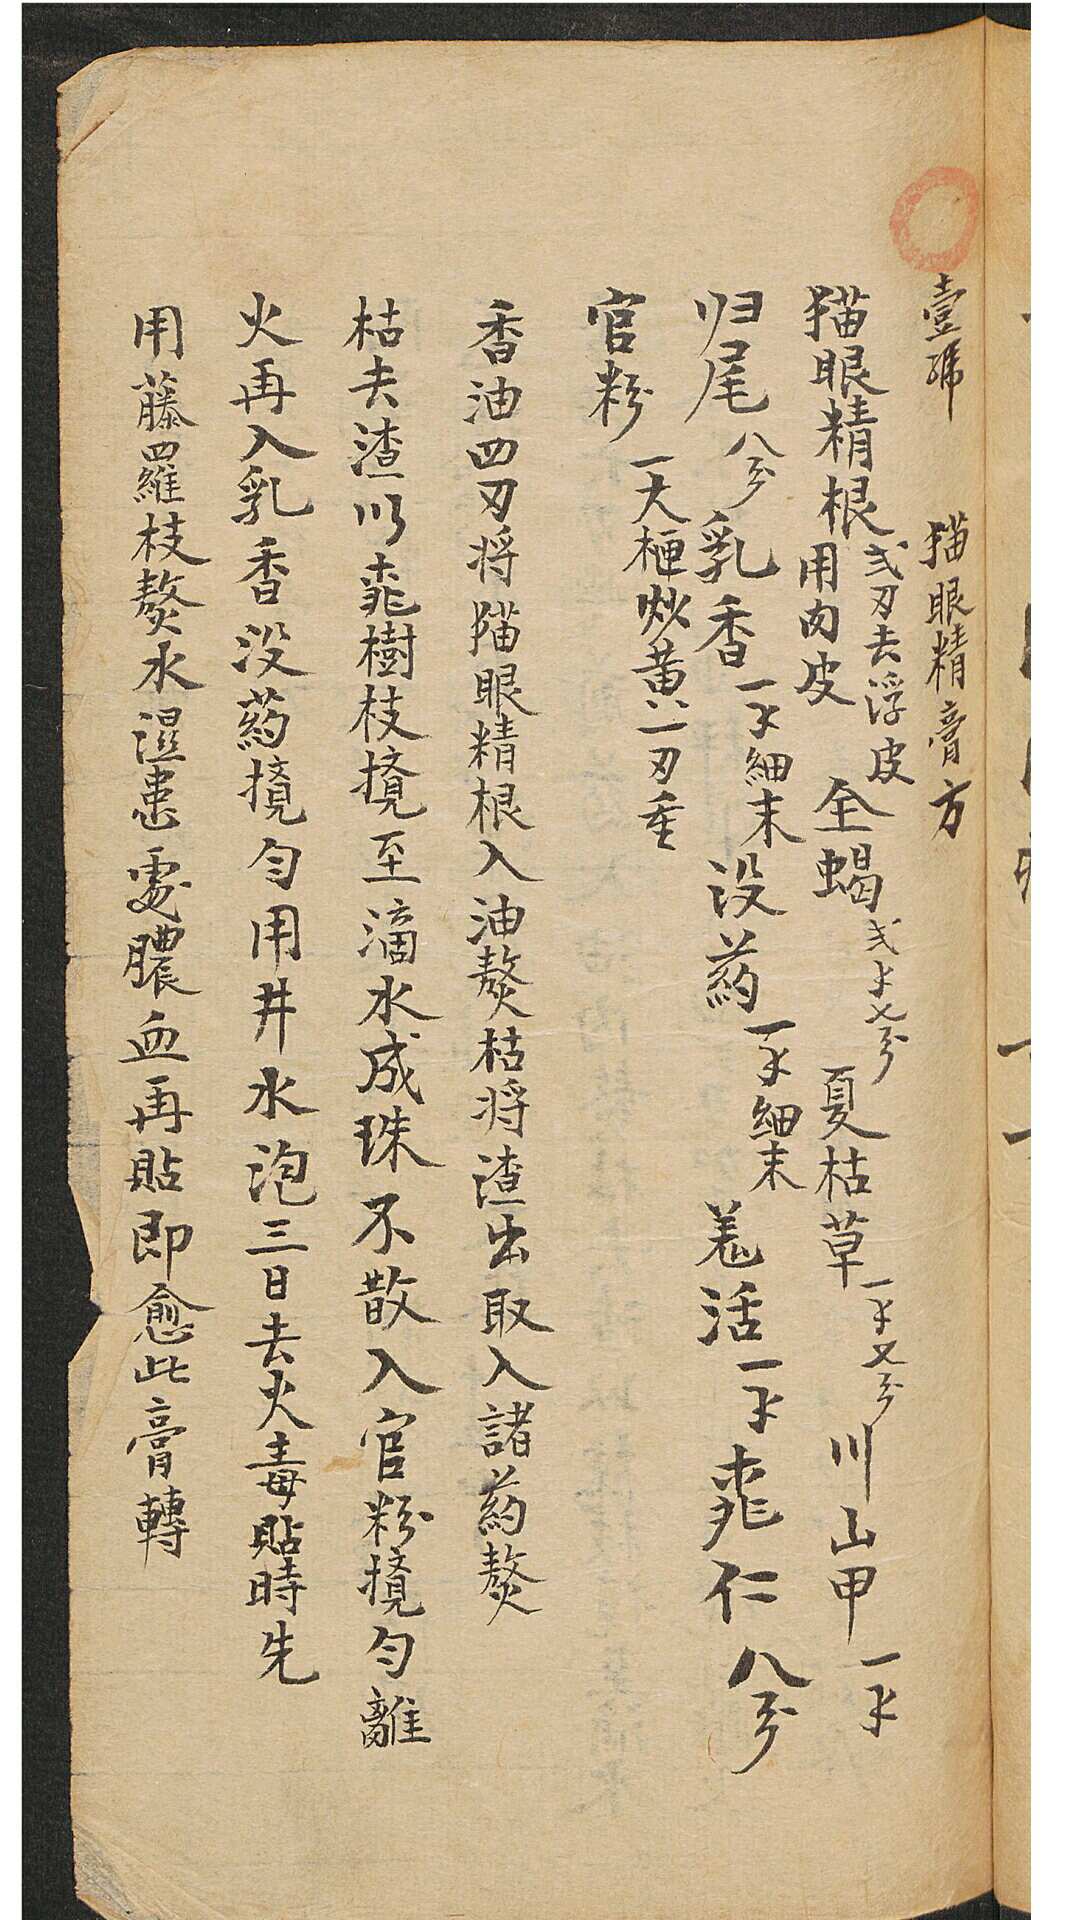 壹號　猫眼精膏方
猫眼精根 弍刃去浮皮用内皮 全蝎 弍㐅分 夏枯草 一㐅分 川山甲 一
归尾 八分 乳香 一 細末 没药 一 細末 羗活 一 桃仁 八分
官粉 一大 炒黄 二刃重
香油四刃将猫眼精根入油熬枯将渣出取入諸药熬
枯去渣以桃樹枝攪至滴水成珠不散入官粉攪匀離
火再入乳香没药攪匀用井水泡三日去火毒貼時先
用藤羅枝熬水湿患處膿血再貼即愈此膏轉